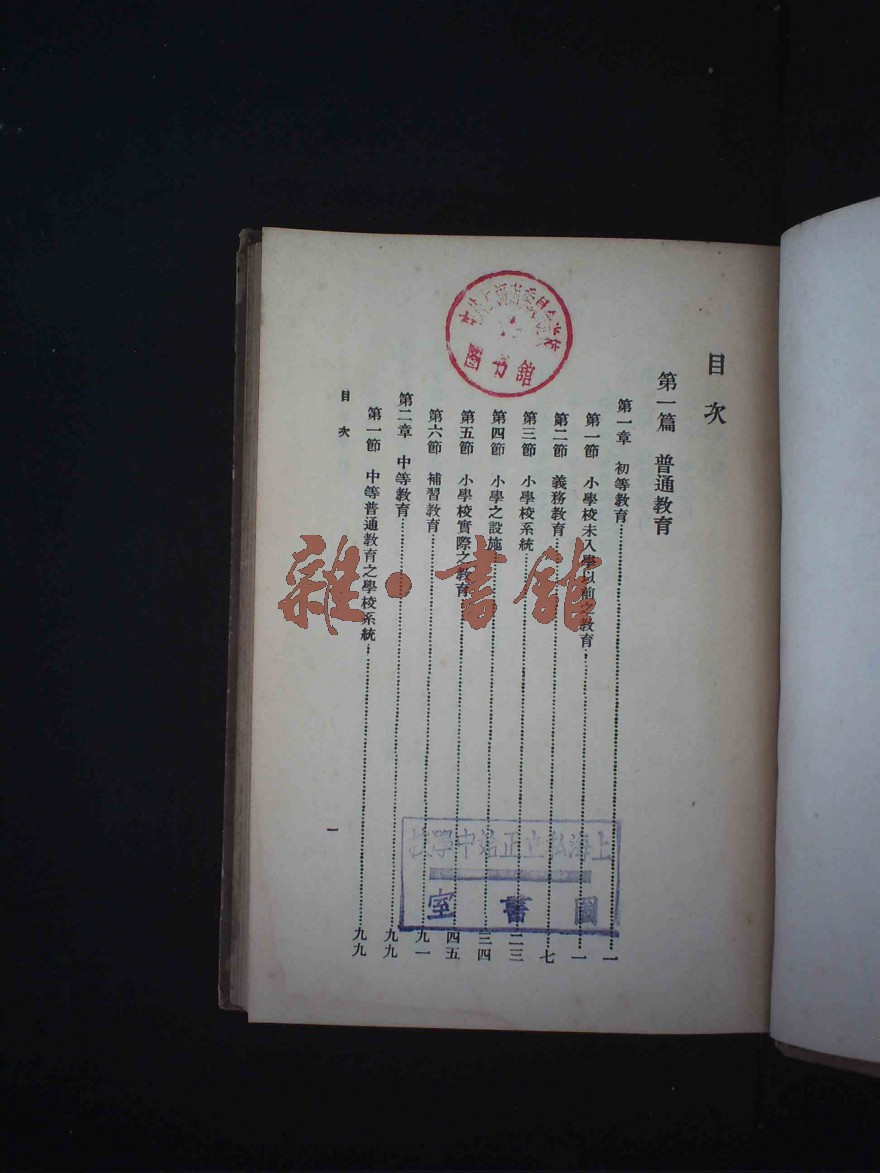 目次
第一篇 普通教育
第一章 初等教育……一
第一節 小學校未入學以前之教育……一
第二節 義務教育……七
第三節 小學校系統……二三
第四節 小學之設施……三四
第五節 小學校實際之教育……四五
第六節 補習教育……九一
第二章 中等教育……九九
第一節 中等普通教育之學校系統……九九
目次
一
圖书館
上海私立正始中學校
圖書室
雜·書館